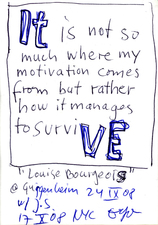 It is not so
much where my
motivation comes
from but rather
how it manages
to surviVE
"Louise Bourgeois"
@ Guggenheim 24 IX 08
w/ J.S.
17 X 08 NYC